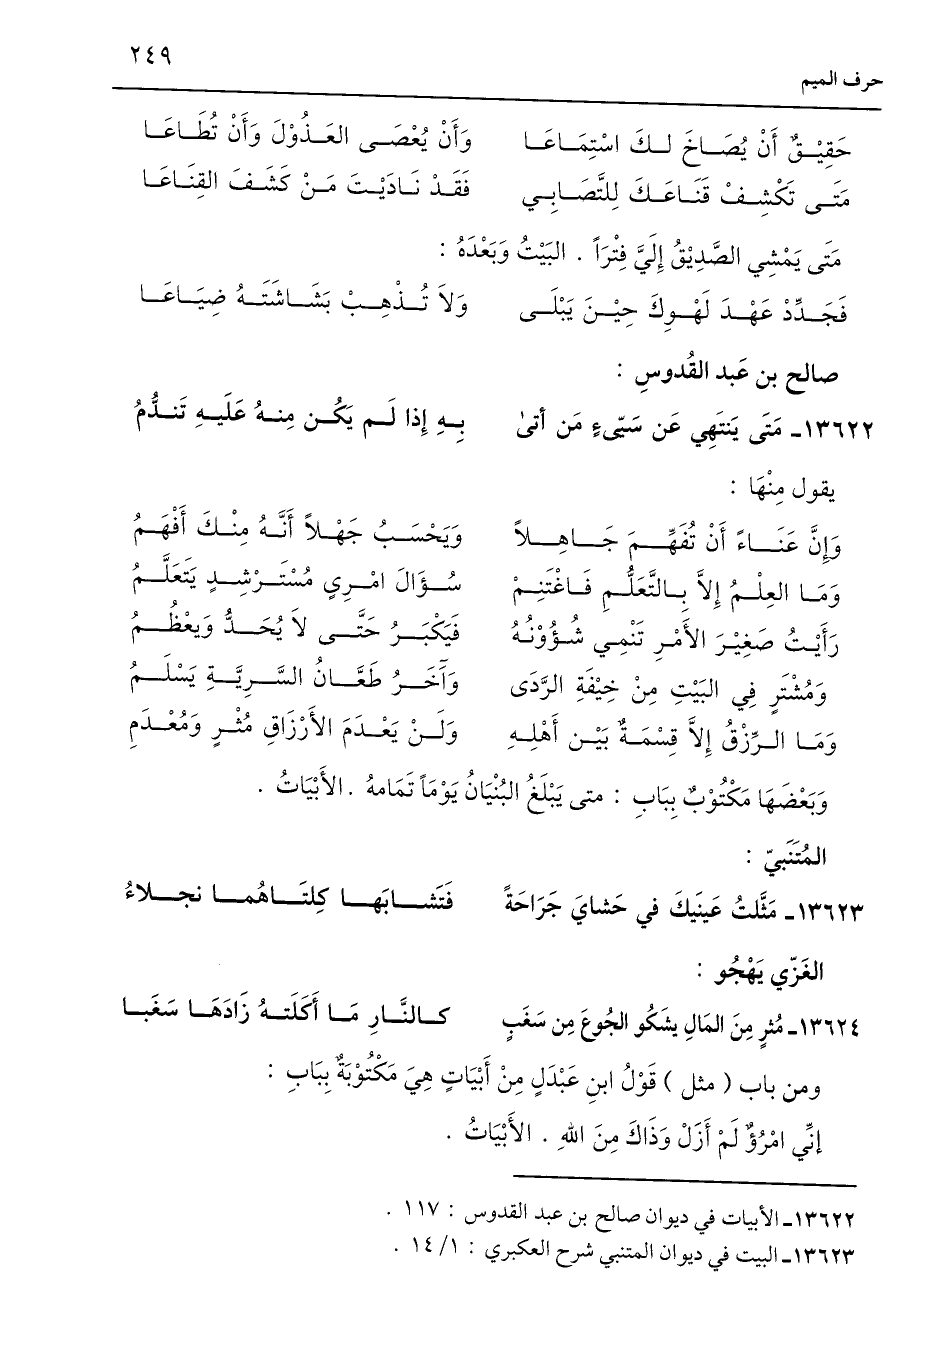 ٢٤٩
حرف الميم
حَقِيْقٌ أَنْ يُصَاخَ لَكَ اسْتِمَاعَا وَأَنْ يُعْصَى العَذُوْلَ وَأَنْ تُطَاعَا
مَتَى تَكْشِفْ قَنَاعَكَ لِلتَّصَابِي فَقَدْ نَادَيْتَ مَنْ كَشَفَ القِنَاعَا
مَتَى يَمْشِي الصَّدِيْقُ إِلَيَّ فِتْراً . البَيْتُ وَبَعْدَهُ :
فَجَدِّدْ عَهْدَ لَهْوِكَ حِيْنَ يَبْلَى وَلاَ تُذْهِبْ بَشَاشَتَهُ ضِيَاعَا
صالح بن عَبد القُدوسِ :
١٣٦٢٢ـ مَتَى يَنتَهِي عَن سَيِّىءٍ مَن أتىٰ بِهِ إذا لَم يَكُن مِنهُ عَلَيهِ تَندُّمُ
يقول مِنْهَا :
وَإِنَّ عَنَاءً أَنْ تُفَهِّمَ جَاهِلاً وَيَحْسَبُ جَهْلاً أَنَّهُ مِنْكَ أَفْهَمُ
وَمَا العِلْمُ إِلاَّ بِالتَّعَلُّمِ فَاغْتَنِمْ سُؤَالَ امْرِي مُسْتَرْشِدٍ يَتَعَلَّمُ
رَأَيْتُ صَغِيْرَ الأَمْرِ تَنْمِي شُؤُوْنُهُ فَيَكْبَرُ حَتَّى لاَ يُحَدُّ وَيعْظُمُ
وَمُشْتَرٍ فِي البَيْتِ مِنْ خِيْفَةِ الرَّدَى وَآخَرُ طَعَّانُ السَّرِيَّةِ يَسْلَمُ
وَمَا الرِّزْقُ إِلاَّ قِسْمَةٌ بَيْن أَهْلِهِ وَلَنْ يَعْدَمَ الأَرْزَاقِ مُثْرٍ وَمُعْدَمِ
وَبَعْضَهَا مَكْتُوْبٌ بِبَابِ : متى يَبْلَغُ البُنْيَانُ يَوْمَاً تَمَامهُ . الأَبْيَاتُ .
المُتَنَبيّ :
١٣٦٢٣ـ مَثَّلتُ عَينَيكَ في حَشايَ جَرَاحَةً فَتَشَابَهَا كِلتَاهُما نجلاءُ
الغَزّي يَهْجُو :
١٣٦٢٤ـ مُثرٍ مِنَ المَالِ يشَكُو الجُوعَ مِن سَغَبٍ كالنَّارِ مَا أَكَلَتهُ زَادَهَا سَغَبا
ومن باب ( مثل ) قَوْلُ ابنِ عَبْدَلٍ مِنْ أَبْيَاتٍ هِيَ مَكْتُوْبَةٌ بِبَابِ :
إِنِّي امْرُؤٌ لَمْ أَزَلْ وَذَاكَ مِنَ اللهِ . الأَبْيَاتُ .
١٣٦٢٢ـ الأبيات في ديوان صالح بن عبد القدوس : ١١٧ .
١٣٦٢٣ـ البيت في ديوان المتنبي شرح العكبري : ١/ ١٤ .